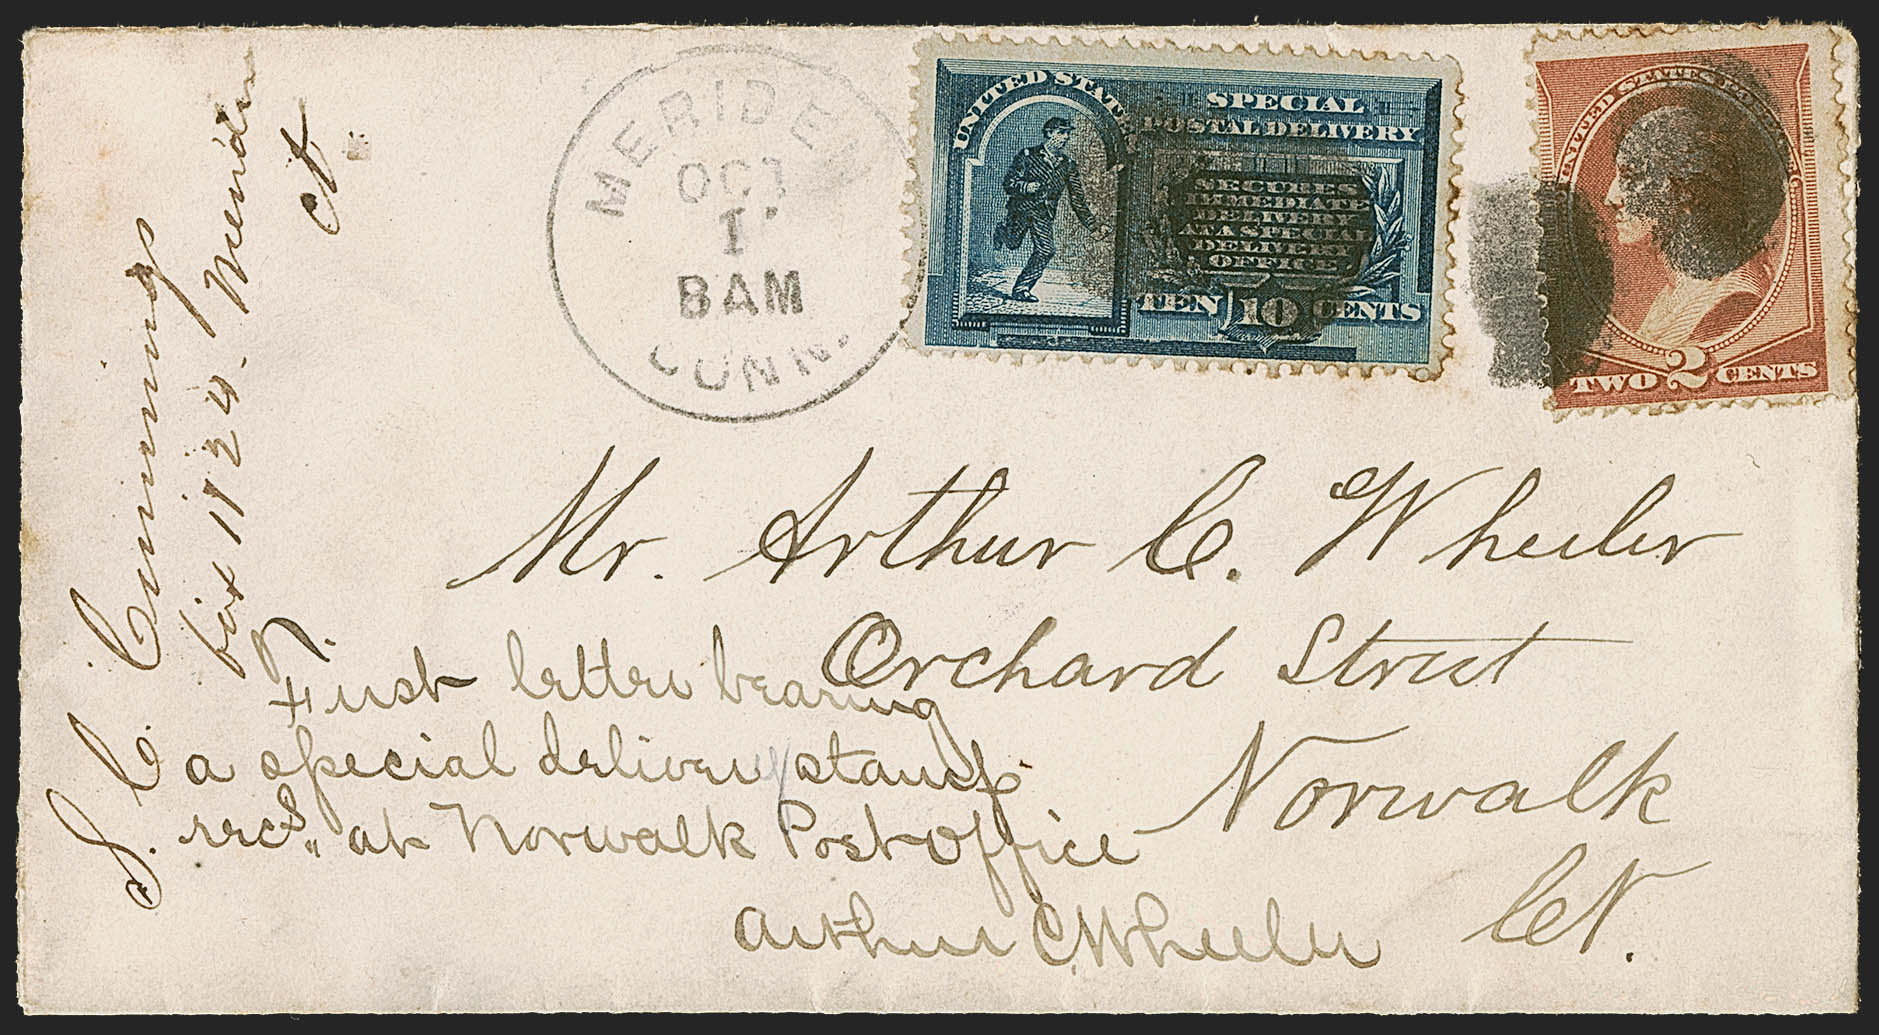 J. C. Cummings
box 1124. Meriden
Ct
MERIDE
OCT
1
8AM
CONN.
UNITED STATES
SPECIAL
POSTAL DELIVERY
SECURES
IMMEDIATE
DELIVERY
AT A SPECIAL
DELIVERY
OFFICE
TEN 10 CENTS
UNITED STATES
TWO 2 CENTS
Mr. Arthur C. Wheeler
Orchard Street
Norwalk
Ct.
First letter bearing
a special delivery stamp
recd. at Norwalk Post office
Arthur C. Wheeler